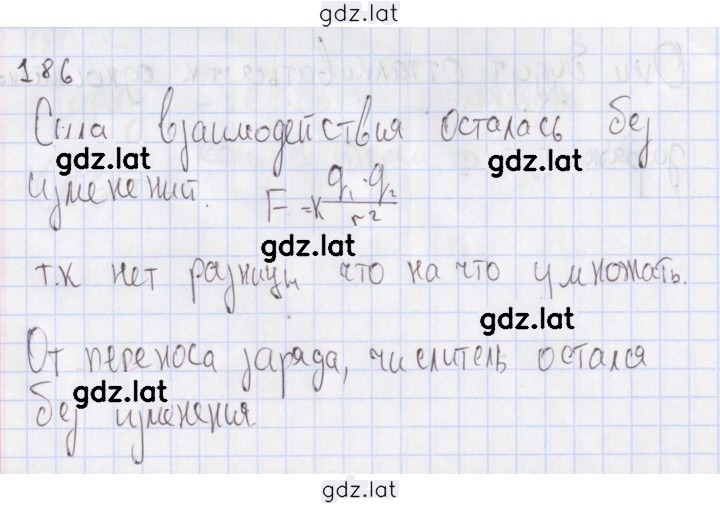 gdz.lat
186
Сила взаимодействия осталась без
gdz.lat
gdz.lat
изменений. F = k q₁·q₂ / r²
gdz.lat
т.к нет разницы что на что умножать.
gdz.lat
От переноса заряда, числитель остался
gdz.lat
без изменения
gdz.lat